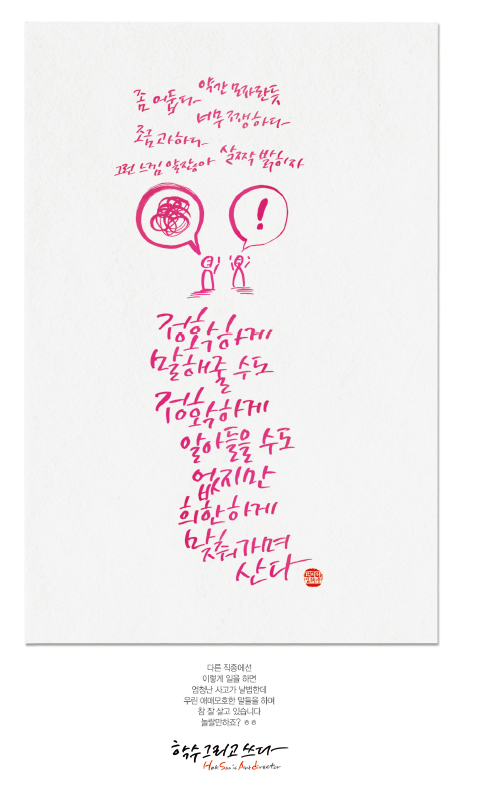 좀 어둡다 약간 모자란듯
너무 쨍하다
조금 과하다
그런 느낌 약잖아 살짝 밝히자
!
정확하게
말해줄 수도
정확하게
알아들을 수도
없지만
희한하게
맞춰가며
산다
다른 직종에선
이렇게 일을 하면
엄청난 사고가 날법한데
우린 애매모호한 말들을 하며
참 잘 살고 있습니다
놀랄만하죠? ㅎㅎ
학수그리고쓰다
Hak Soo is Art director